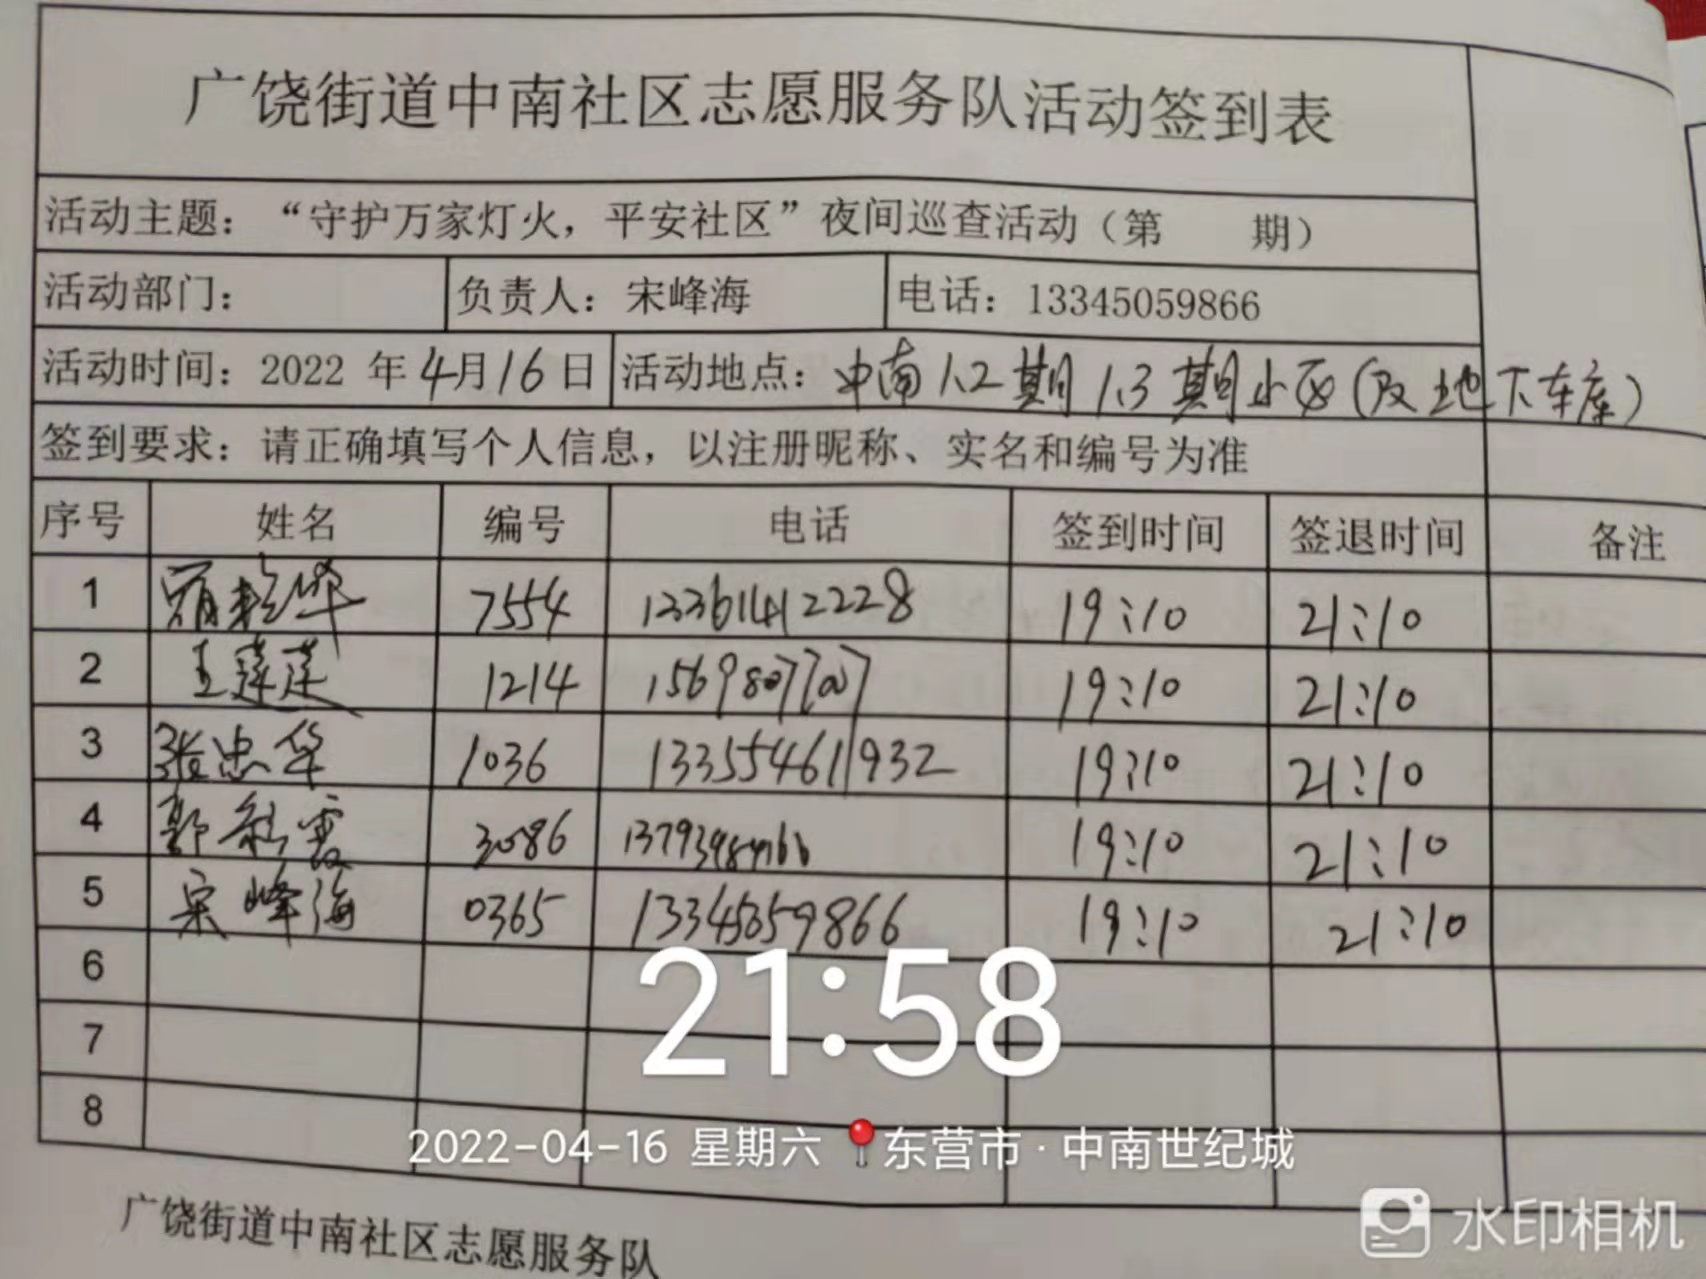 广饶街道中南社区志愿服务队活动签到表
活动主题：“守护万家灯火，平安社区”夜间巡查活动（第 期）
活动部门： 负责人：宋峰海 电话：13345059866
活动时间：2022 年4月16日 活动地点：中南1.2期1.3期小区(及地下车库)
签到要求：请正确填写个人信息，以注册昵称、实名和编号为准
序号 姓名 编号 电话 签到时间 签退时间 备注
1 7554 13361412228 19:10 21:10
2 王莲莲 1214 19:10 21:10
3 张忠华 1036 13355461932 19:10 21:10
4 郭秀霞 3086 19:10 21:10
5 宋峰海 0365 13345059866 19:10 21:10
6
7
8
21:58
2022-04-16 星期六 东营市·中南世纪城
广饶街道中南社区志愿服务队
水印相机